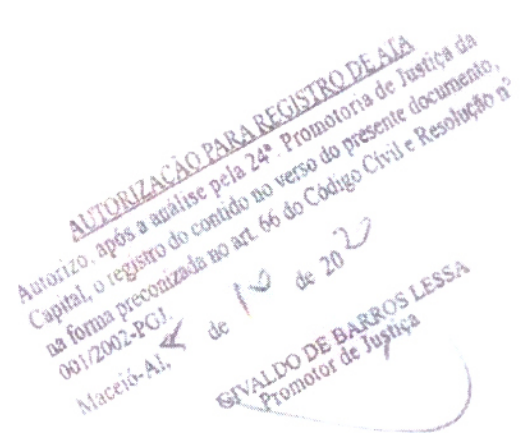 AUTORIZAÇÃO PARA REGISTRO DE ATA
Autorizo, após a análise pela 24ª. Promotoria de Justiça da
Capital, o registro do contido no verso do presente documento,
na forma preconizada no art. 66 do Código Civil e Resolução nº
001/2002-PGJ.
Maceió-Al, de de 20
GIVALDO DE BARROS LESSA
Promotor de Justiça